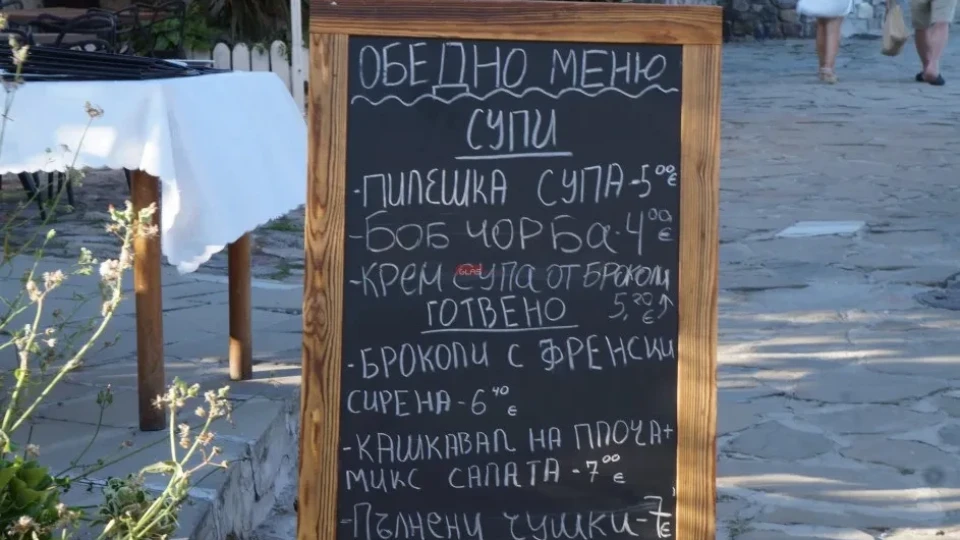 ОБЕДНО МЕНЮ
СУПИ
-ПИЛЕШКА СУПА-5⁰⁰€
-БОБ ЧОРБА-4⁰⁰€
-КРЕМ СУПА ОТ БРОКОЛИ
5,²⁰€
ГОТВЕНО
-БРОКОЛИ С ФРЕНСКИ
СИРЕНА-6⁴⁰€
-КАШКАВАЛ НА ПЛОЧА+
МИКС САЛАТА-7⁰⁰€
-ПЪЛНЕНИ ЧУШКИ-7€